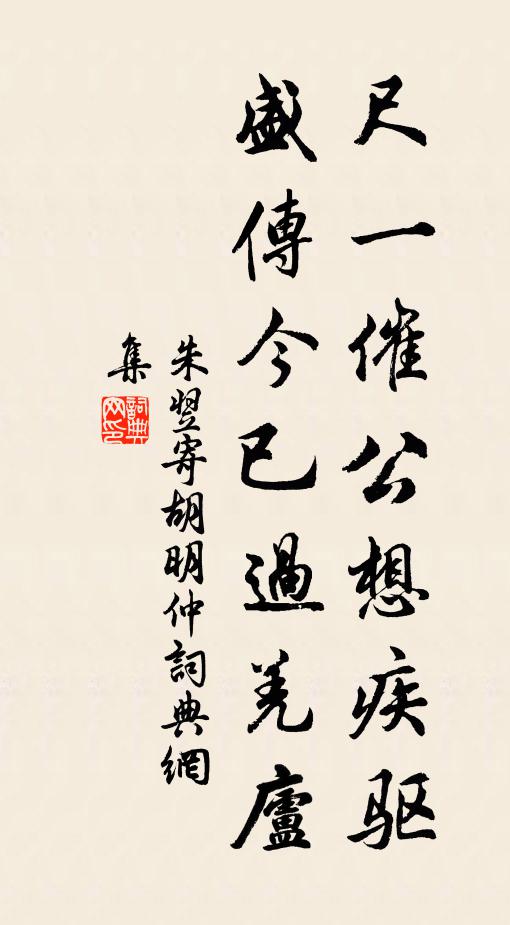 尺一催公想疾驱
盛傳今已過羌廬
朱翌寄胡明仲詞典網
集
詞典
网印